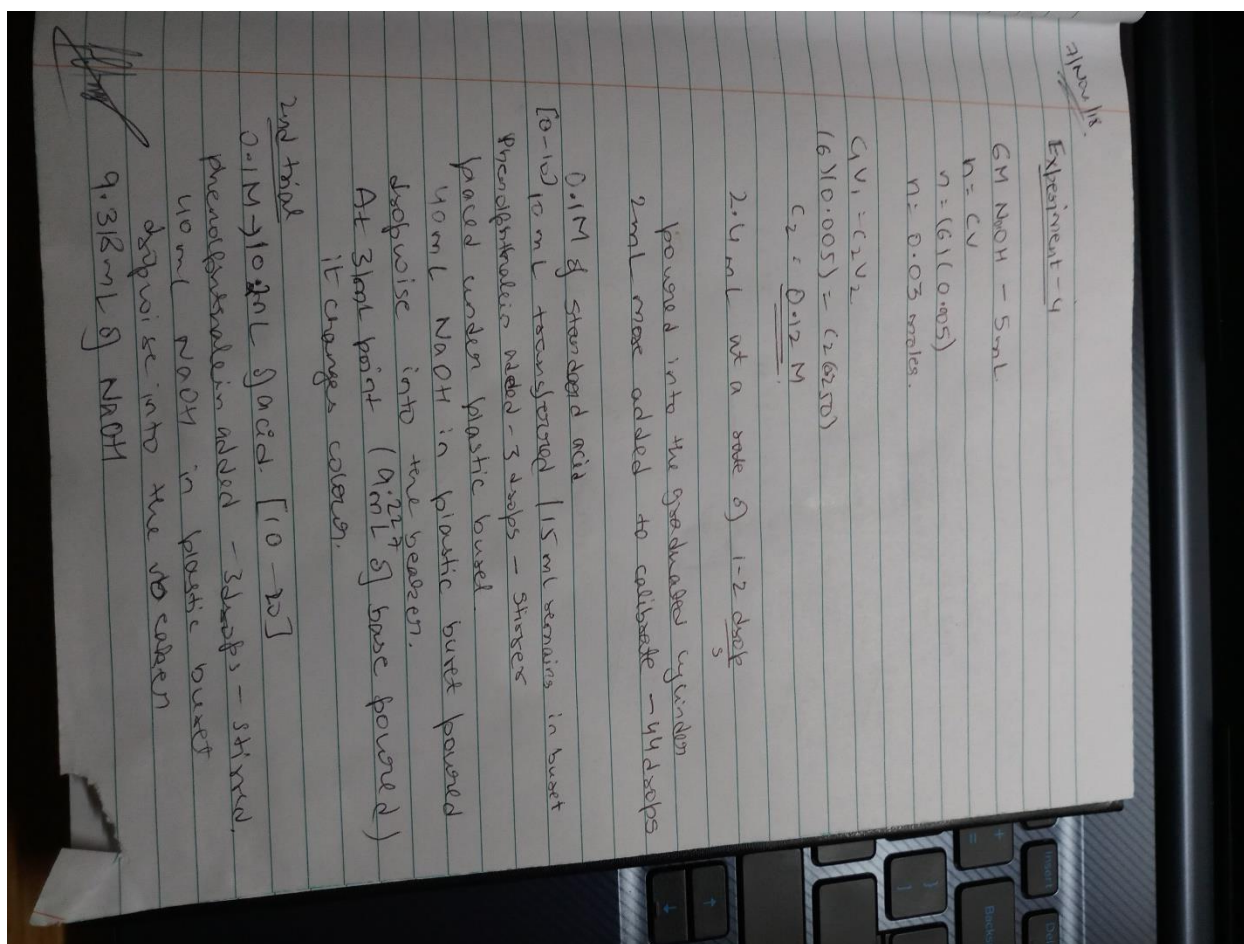 7/Nov/18.
Experiment - 4
6M NaOH - 5mL
n = CV
n = (6)(0.005)
n = 0.03 moles.
C1V1 = C2V2
(6)(0.005) = (C2)(250)
C2 = 0.12 M
2.4 mL at a rate of 1-2 drop/s
poured into the graduated cylinder
2mL more added to calibrate - 44 drops
0.1M of standard acid
[0-10] 10 mL transferred / 15 ml remains in buret
Phenolphthalein added - 3 drops - stirrer
placed under plastic buret.
40 mL NaOH in plastic buret poured
dropwise into the beaker.
At 31 point (9.227 mL of base poured)
it changes colour.
2nd trial
0.1M → 10 mL of acid. [10 - 20]
phenolphthalein added - 3 drops - stirred.
40 mL NaOH in plastic buret
dropwise into the beaker
9.318 mL of NaOH
Insert
Backsp